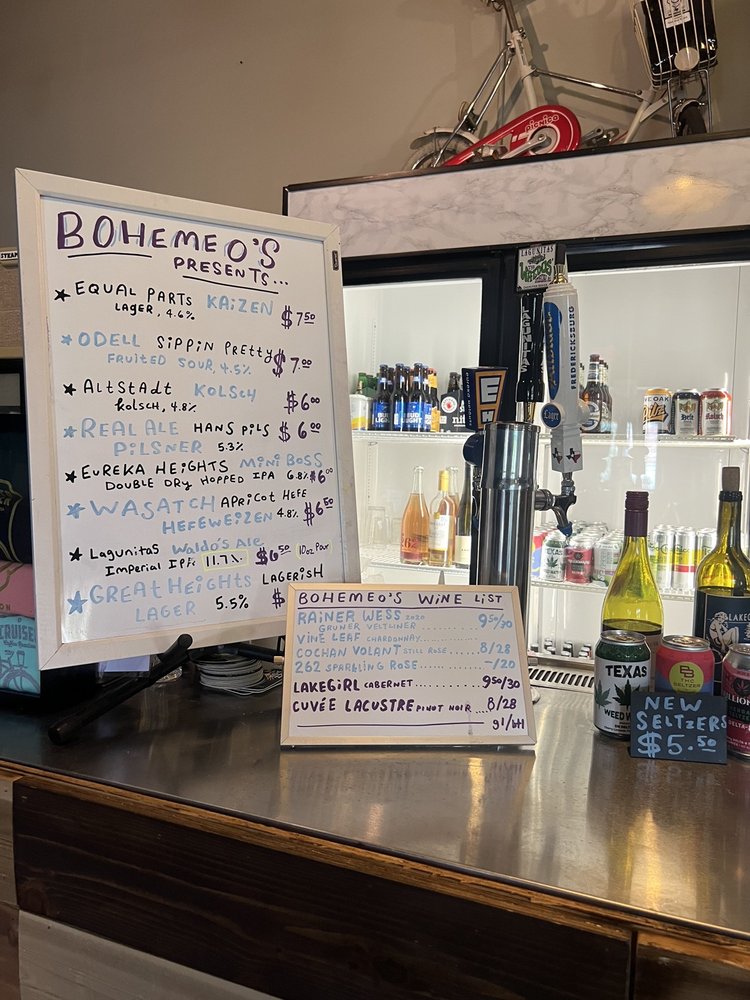 BOHEMEO'S
PRESENTS...
EQUAL PARTS KAIZEN
LAGER, 4.6% $7.50
ODELL SIPPIN PRETTY
FRUITED SOUR, 4.5% $7.00
ALTSTADT KOLSCH
kolsch, 4.8% $6.00
REAL ALE HANS PILS $6.00
PILSNER 5.3%
EUREKA HEIGHTS MINI BOSS
DOUBLE DRY HOPPED IPA 6.8% $6.00
WASATCH APRICOT HEFE
HEFEWEIZEN 4.8% $6.50
Lagunitas Waldo's Ale
Imperial IPA 11.7% $6.50 10oz Pour
GREAT HEIGHTS LAGERISH
LAGER 5.5% $
BOHEMEO'S WINE LIST
RAINER WESS 2020
GRUNER VELTLINER 9.50/30
VINE LEAF CHARDONNAY
COCHAN VOLANT STILL ROSE 8/28
262 SPARKLING ROSE -/20
LAKEGIRL CABERNET 9.50/30
CUVÉE LACUSTRE PINOT NOIR 8/28
gl/btl
NEW
SELTZERS
$5.50
TEXAS
WEED W
THC
SELTZER
picnica
LAGUNITAS
LAGUNITAS
FREDERICKSBURG
BUD
LIGHT
CRUISE
STEAP